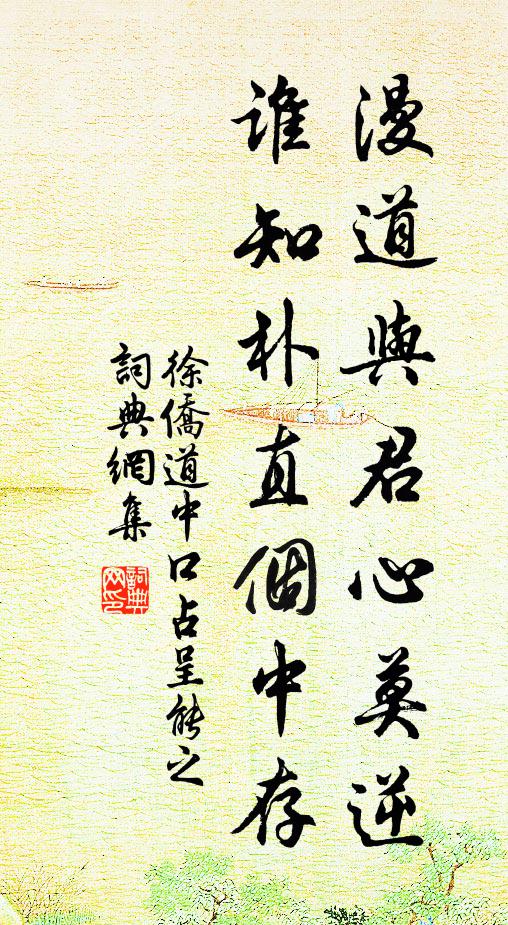 漫道與君心莫逆
谁知朴直個中存
徐僑道中口占呈能之
詞典網集
詞典
网印